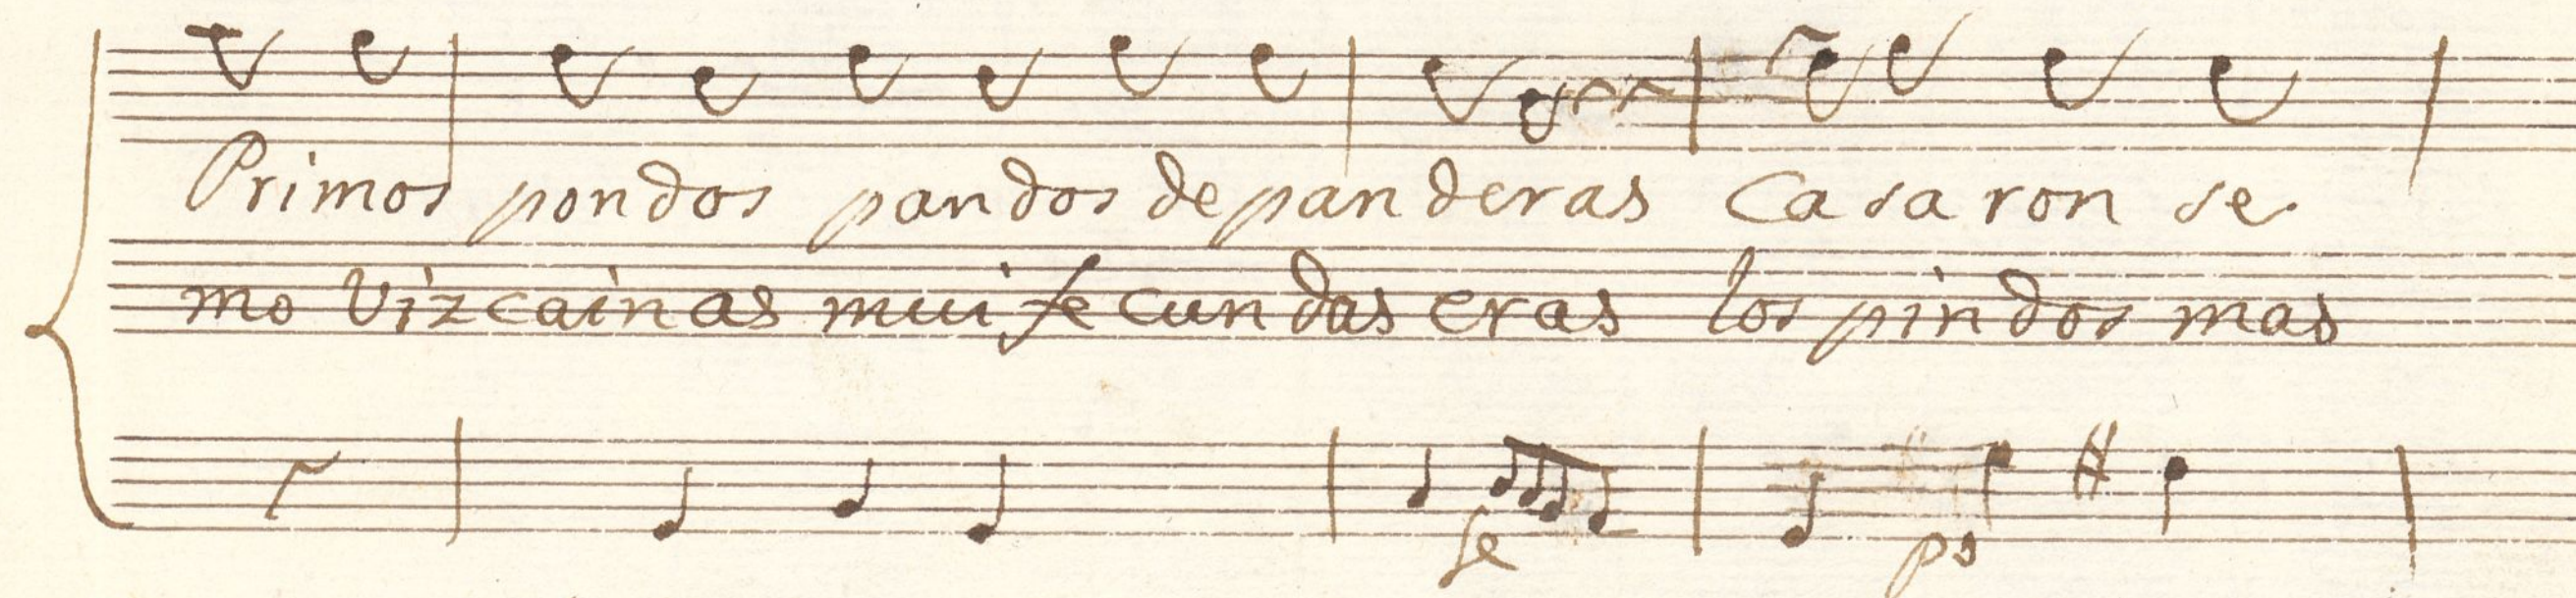 Primos pondos pandos de panderas Casaronse
mo vizcainas mui fecundas eras los pindos mas
fe ps